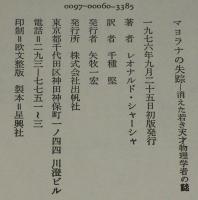 0097-00060-3385
マヨラナの失踪—消えた若き天才物理学者の謎
一九七六年九月二十五日初版発行
著者 レオナルド・シャーシャ
訳者 千種堅
発行者 矢牧一宏
発行所 株式会社出帆社
東京都千代田区神田神保町一ノ四四 川澄ビル
電話=二九三—七七五一~三
印刷=欧文整版 製本=星興社